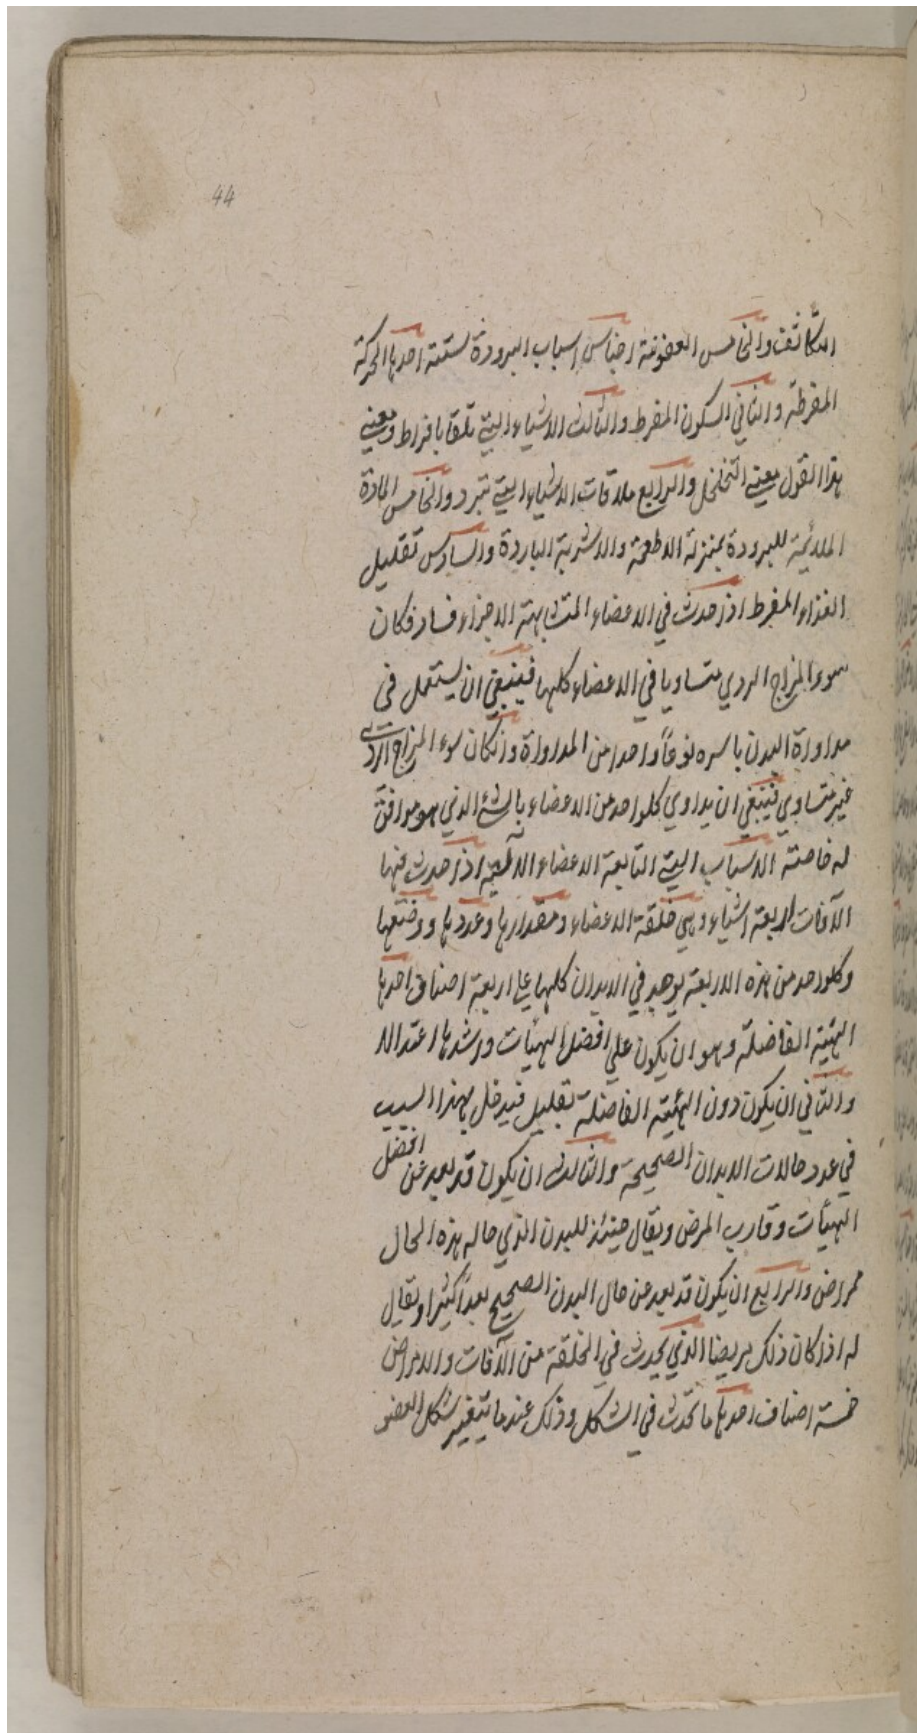 44
التكاثف والخامس العفونة اجناس اسباب البرودة ستة احدها الحركة
المفرطة والثاني السكون المفرط والثالث الاشياء التي تلقا بافراط ويعني
بهذا القول يعني التخلخل والرابع ملاقات الاشياء التي تبرد والخامس المادة
الملائمة للبرودة بمنزلة الاطعمة والاشربة الباردة والسادس تقليل
الغذاء المفرط اذا حدث في الاعضاء المتشابهة الاجزاء فساد فكان
سوء المزاج الردي متساويا في الاعضاء كلها فينبغي ان يستعمل في
مداواة البدن باسره نوعاً واحدا من المداواة وان كان سوء المزاج الردي
غير متساوي فينبغي ان يداوي كلواحد من الاعضاء بالشئ الذي هو موافق
له خاصته الاسباب التي التابعة الاعضاء الآلية اذا حدث فيها
الآفات اربعة اشياء وهي خلقة الاعضاء ومقدارها وعددها ووضعها
وكلواحد من هذه الاربعة يوجد في الابدان كلها علي اربعة اصناف احدها
الهيئة الفاضلة وهو ان يكون علي افضل الهيئات واشدها اعتدالا
والثاني ان يكون دون الهيئة الفاضلة بقليل فيدخل بهذا السبب
في عدد حالات الابدان الصحيحة والثالث ان يكون قد بعد عن افضل
الهيئات وقارب المرض ويقال حينئذ للبدن الذي حاله هذه الحال
ممراض والرابع ان يكون قد بعد عن حال البدن الصحيح بعداً كثيرا ويقال
له اذا كان ذلك مريضا الذي يحدث في الخلقة من الآفات والامراض
خمسة اصناف احدها ما تحدث في الشكل وذلك عندما يتغير شكل العضو